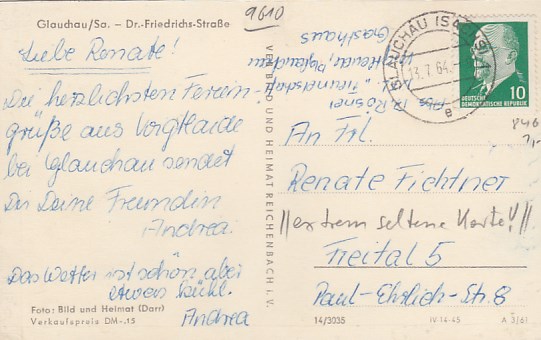 Glauchau/Sa. – Dr.-Friedrichs-Straße
9610
Liebe Renate!
Die herzlichsten Ferien-
grüße aus Voigtlaide
bei Glauchau sendet
Dir Deine Freundin
Andrea.
Das Wetter ist schön, aber
etwas kühl.
Andrea
Foto: Bild und Heimat (Darr)
Verkaufspreis DM -.15
VEB BILD UND HEIMAT REICHENBACH i. V.
Gasthaus
Glauchau
"Freundschaft"
GLAUCHAU (SACHS)
13.7.64
e
10
DEUTSCHE
DEMOKRATISCHE REPUBLIK
An Frl.
Renate Fichtner
||extrem seltene Karte!!||
Freital 5
Paul-Ehrlich-Str. 8
14/3035
IV-14-45
A 3/61